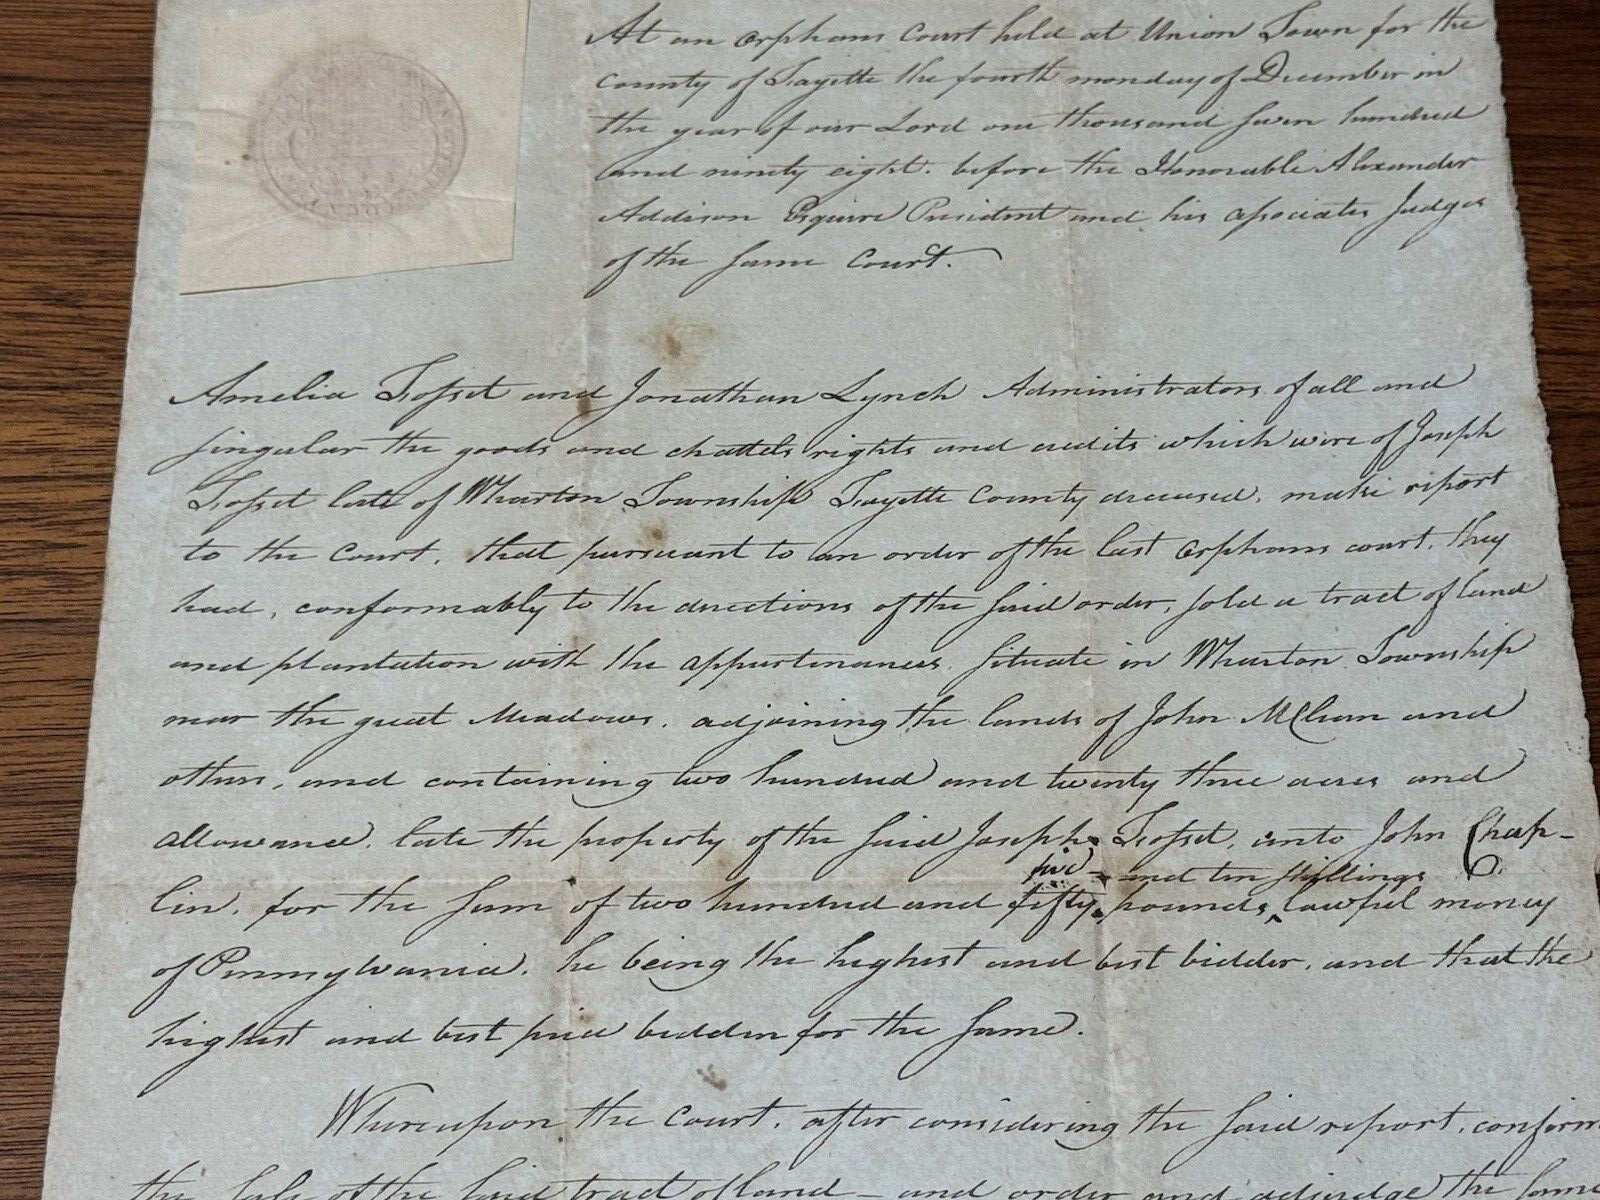 At an Orphans Court held at Union Town for the
county of Fayette the fourth monday of December in
the year of our Lord one thousand seven hundred
and ninety eight. before the Honorable Alexander
Addison Esquire President and his associates Judges
of the same Court.
Amelia Fosset and Jonathan Lynch Administrators of all and
singular the goods and chattels rights and credits which were of Joseph
Fosset late of Wharton Township Fayette County deceased, make report
to the Court, that pursuant to an order of the last Orphans court, they
had, conformably to the directions of the said order, sold a tract of land
and plantation with the appurtenances situate in Wharton Township
near the great Meadows, adjoining the lands of John McClean and
others, and containing two hundred and twenty three acres and
allowance, late the property of the said Joseph Fosset, unto John Chap-
five and ten shillings
lin, for the sum of two hundred and fifty pounds lawful money
of Pennsylvania, he being the highest and best bidder, and that the
highest and best price bidden for the same.
Whereupon the Court, after considering the said report, confirm
the sale of the said tract of land and order and adjudge the same